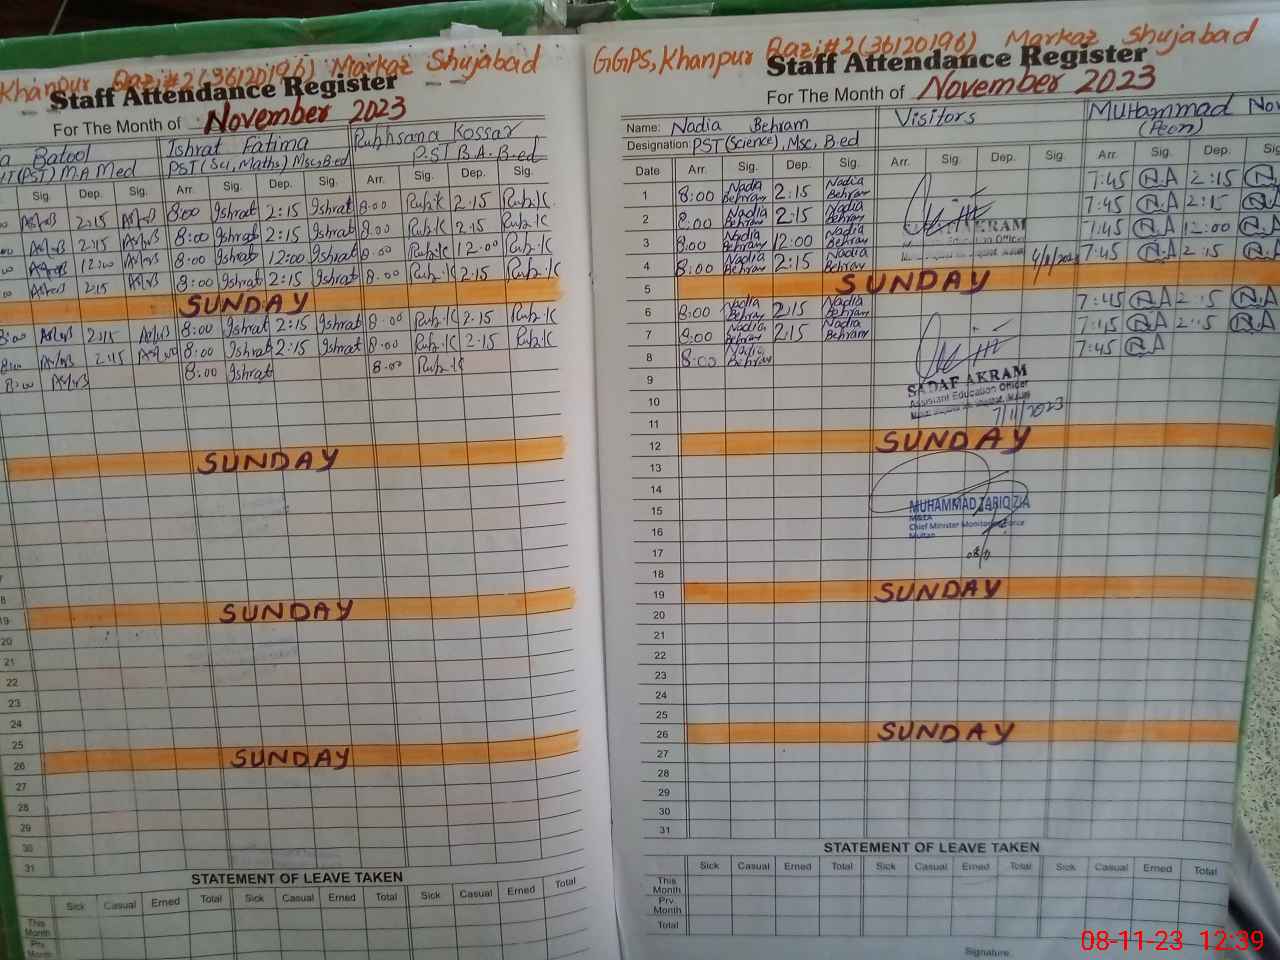 Khanpur Qazi#2 (36120196) Markaz Shujabad
Staff Attendance Register
For The Month of November 2023
a Batool Ishrat Fatima Rukhsana Kossar
(PST) M.A Med PST (Sci, Maths) Msc, B.ed P.S.T B.A. B.ed
Sig. Dep. Sig. Arr. Sig. Dep. Sig. Arr. Sig. Dep. Sig.
2:15 8:00 Ishrat 2:15 Ishrat 8:00 Rub.K 2.15 Rub.K
2:15 8:00 Ishrat 2:15 Ishrat 8.00 Rub.K 2.15 Rub.K
12:00 8:00 Ishrat 12:00 Ishrat 8.00 Rub.K 12.00 Rub.K
2:15 8:00 Ishrat 2:15 Ishrat 8.00 Rub.K 2.15 Rub.K
SUNDAY
8:00 2:15 8:00 Ishrat 2:15 Ishrat 8.00 Rub.K 2.15 Rub.K
8:00 2:15 8:00 Ishrat 2:15 Ishrat 8.00 Rub.K 2.15 Rub.K
8:00 8:00 Ishrat 8.00 Rub.K
SUNDAY
19 SUNDAY
20
21
22
23
24
25
26 SUNDAY
27
28
29
30
31
STATEMENT OF LEAVE TAKEN
Sick Casual Erned Total Sick Casual Erned Total Sick Casual Erned Total
This Month
Prv. Month
GGPS, Khanpur Qazi#2 (36120196) Markaz Shujabad
Staff Attendance Register
For The Month of November 2023
Name: Nadia Behram Visitors Muhammad Nov
Designation: PST (Science), Msc, B.ed (Peon)
Date Arr. Sig. Dep. Sig. Arr. Sig. Dep. Sig. Arr. Sig. Dep. Sig.
1 8:00 Nadia Behram 2:15 Nadia Behram 7:45 N.A 2:15 N.A
2 8:00 Nadia Behram 2:15 Nadia Behram 7:45 N.A 2:15 N.A
3 8:00 Nadia Behram 12:00 Nadia Behram AKRAM 7:45 N.A 12:00 N.A
4 8:00 Nadia Behram 2:15 Nadia Behram 7:45 N.A 2:15 N.A
5 SUNDAY
6 8:00 Nadia Behram 2:15 Nadia Behram 7:45 N.A 2:15 N.A
7 8:00 Nadia Behram 2:15 Nadia Behram 7:45 N.A 2:15 N.A
8 8:00 Nadia Behram 7:45 N.A
9 SADAF AKRAM
10 Assistant Education Officer
11 7/11/2023
12 SUNDAY
13
14
15 MUHAMMAD TARIQ ZIA
MEA
16 Chief Minister Monitoring Force
Multan
17 08/11
18
19 SUNDAY
20
21
22
23
24
25
26 SUNDAY
27
28
29
30
31
STATEMENT OF LEAVE TAKEN
Sick Casual Erned Total Sick Casual Erned Total Sick Casual Erned Total
This Month
Prv. Month
Total
Signature.
08-11-23 12:39